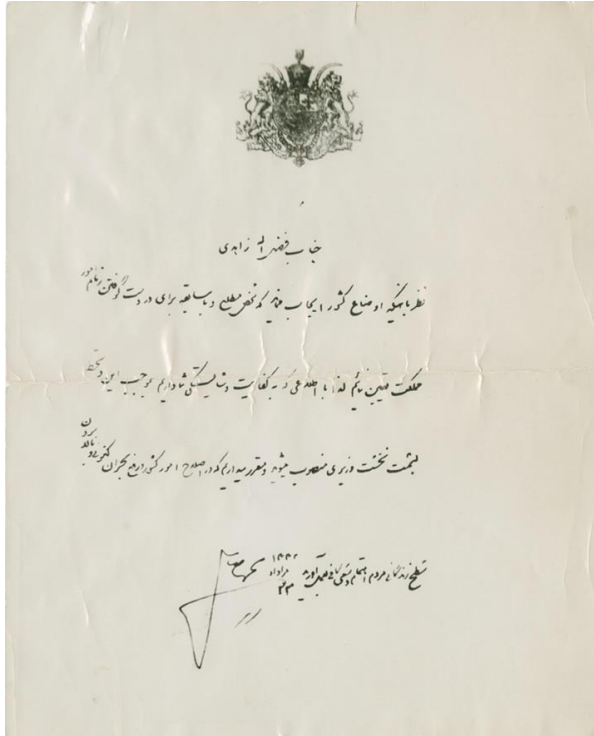 جناب فضل الله زاهدی
نظر باینکه اوضاع کشور ایجاب مینماید که شخص مطلع و با سابقه برای در دست گرفتن زمام امور
مملکت تعیین نمائیم لذا با اطلاعی که به کفایت و شایستگی شما داریم بموجب این دستخط
بسمت نخست وزیری منصوب میشوید و مقرر میداریم که در اصلاح امور کشور و رفع بحران کنونی و بالا بردن
سطح زندگانی مردم اهتمام و سعی کافی بعمل آورید
۱۳۳۲
مرداد ماه